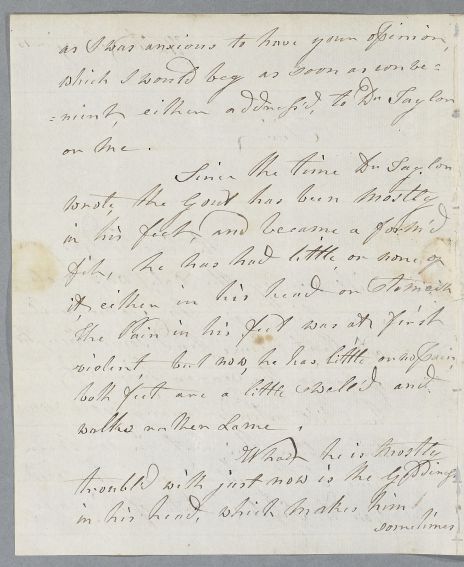 as I was anxious to have your opinion,
which I would beg as soon as conve=
=nient, either address'd, to Dr Taylor
or me.
Since the time Dr Taylor
wrote, the Gout has been mostly
in his feet, and became a form'd
fit, he has had little or none of
it either in his head or Stomach
the Pain in his feet was at first
violent, but now, he has little or no pain,
both feet are a little swell'd and
walks rather Lame.
What he is mostly
troubled with just now is the Giddiness
in his head, which makes him
sometimes